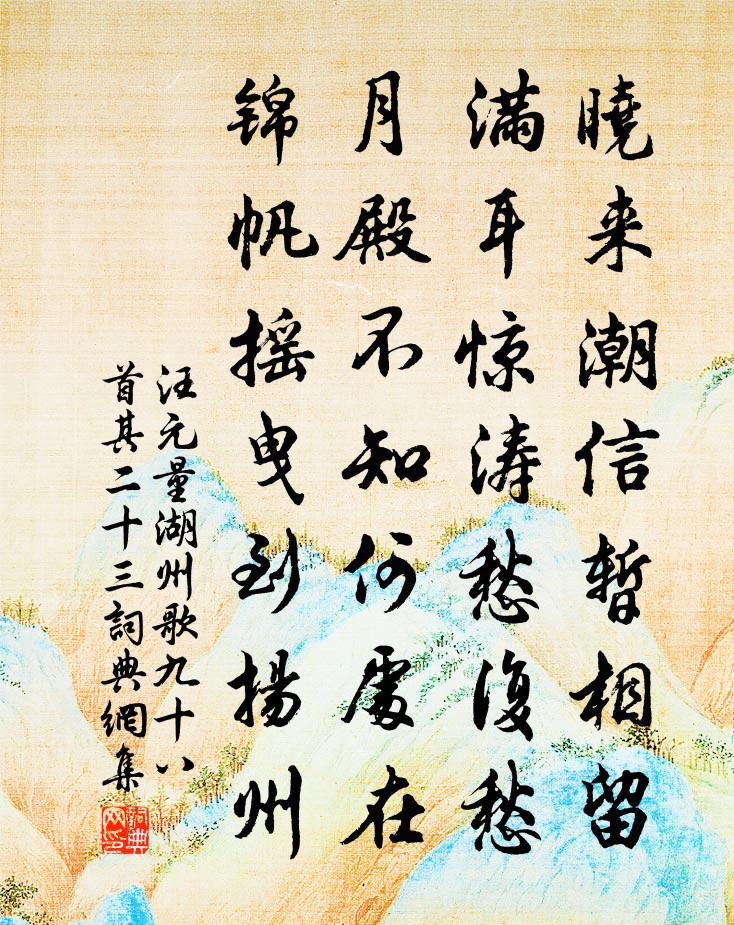 曉来潮信暫相留
满耳惊涛愁復愁
月殿不知何處在
锦帆摇曳到揚州
汪元量湖州歌九十八
首其二十三詞典網集
詞典